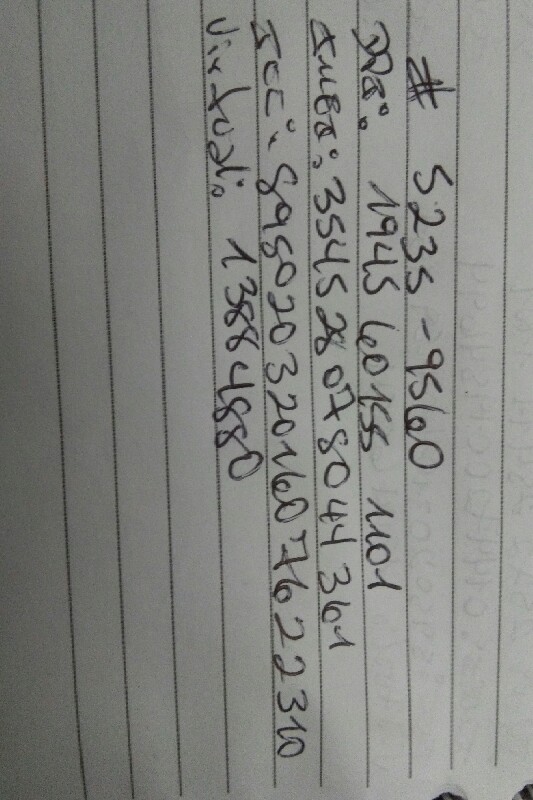 # 5235-9560
DPI: 1945 60155 1101
IMEI: 354528078044361
ICC: 8950203201607622310
Virtual: 13884880